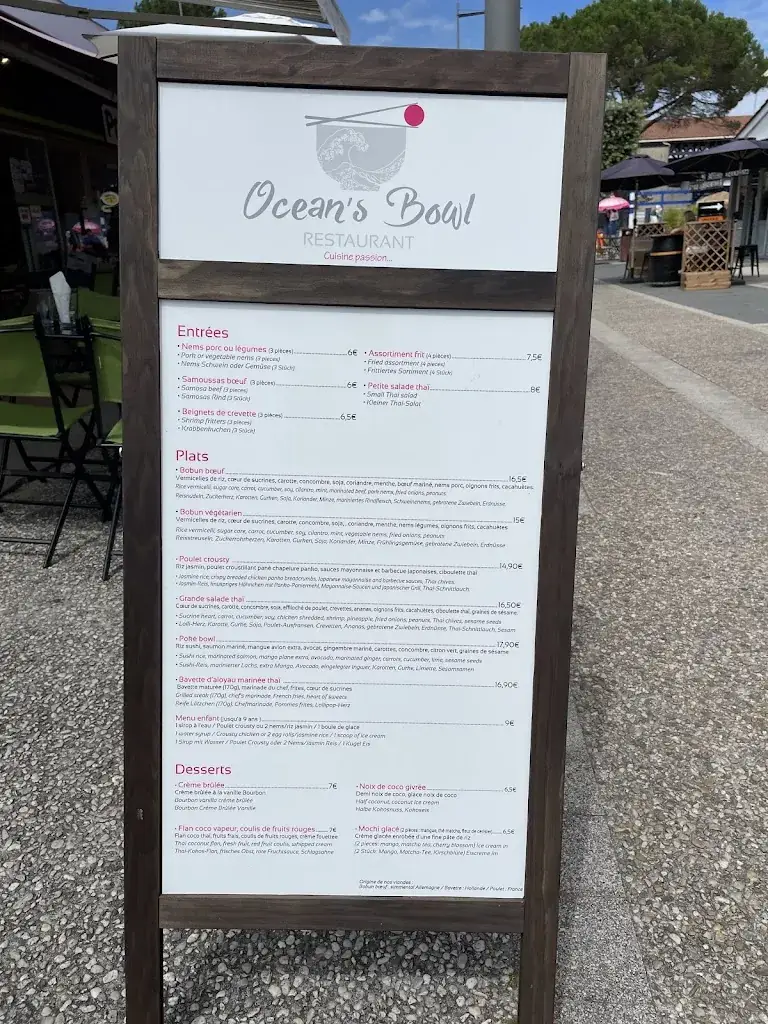 Ocean's Bowl
RESTAURANT
Cuisine passion...
Entrées
• Nems porc ou légumes (3 pièces) 6€
• Pork or vegetable nems (3 pieces)
• Nems Schwein oder Gemüse (3 Stück)
• Samoussas bœuf (3 pièces) 6€
• Samosa beef (3 pieces)
• Samosas Rind (3 Stück)
• Beignets de crevette (3 pièces) 6,5€
• Shrimp fritters (3 pieces)
• Krabbenkuchen (3 Stück)
• Assortiment frit (4 pièces) 7,5€
• Fried assortment (4 pieces)
• Frittiertes Sortiment (4 Stück)
• Petite salade thaï 8€
• Small Thai salad
• Kleiner Thai-Salat
Plats
• Bobun bœuf 16,5€
Vermicelles de riz, cœur de sucrines, carotte, concombre, soja, coriandre, menthe, bœuf mariné, nems porc, oignons frits, cacahuètes.
Rice vermicelli, sugar care, carrot, cucumber, soy, cilantro, mint, marinated beef, pork nems, fried onions, peanuts
Reisnudeln, Zuckerherz, Karotten, Gurken, Soja, Koriander, Minze, mariniertes Rindfleisch, Schweinenems, gebratene Zwiebeln, Erdnüsse.
• Bobun végétarien 15€
Vermicelles de riz, cœur de sucrines, carotte, concombre, soja, coriandre, menthe, nems légumes, oignons frits, cacahuètes
Rice vermicelli, sugar care, carrot, cucumber, soy, cilantro, mint, vegetable nems, fried onions, peanuts
Reisstreuseln, Zuckerrohrherzen, Karotten, Gurken, Soja, Koriander, Minze, Frühlingsgemüse, gebratene Zwiebeln, Erdnüsse
• Poulet crousty 14,90€
Riz jasmin, poulet croustillant pané chapelure panko, sauces mayonnaise et barbecue japonaises, ciboulette thaï
• Jasmine rice, crispy breaded chicken panko breadcrumbs, Japanese mayonnaise and barbecue sauces, Thai chives.
• Jasmin-Reis, knuspriges Hähnchen mit Panko-Paniermehl, Mayonnaise-Saucen und japanischer Grill, Thai-Schnittlauch
• Grande salade thaï 16,50€
Cœur de sucrines, carotte, concombre, soja, effiloché de poulet, crevettes, ananas, oignons frits, cacahuètes, ciboulette thaï, graines de sésame.
• Sucrine heart, carrot, cucumber, soy, chicken shredded, shrimp, pineapple, fried onions, peanuts, Thai chives, sesame seeds
• Lolli-Herz, Karotte, Gurke, Soja, Poulet-Ausfransen, Crevetten, Ananas, gebratene Zwiebeln, Erdnüsse, Thai-Schnittlauch, Sesam
• Poke bowl 17,90€
Riz sushi, saumon mariné, mangue avion extra, avocat, gingembre mariné, carotten, concombre, citron vert, graines de sésame
• Sushi rice, marinated salmon, mango plane extra, avocado, marinated ginger, carrots, cucumber, lime, sesame seeds
• Sushi-Reis, marinierter Lachs, extra Mango, Avocado, eingelegter Ingwer, Karotten, Gurke, Limette, Sesamsamen
• Bavette d'aloyau marinée thaï 16,90€
Bavette maturée (170g), marinade du chef, frites, cœur de sucrines
Grilled steak (170g), chef's marinade, French fries, heart of sweets
Reife Lätzchen (170g), Chefmarinade, Pommes frites, Lollipop-Herz
Menu enfant (jusqu'à 9 ans) 9€
1 sirop à l'eau / Poulet crousty ou 2 nems/riz jasmin / 1 boule de glace
1 water syrup / Crousty chicken or 2 egg rolls/jasmine rice / 1 scoop of ice cream
1 Sirup mit Wasser / Poulet Crousty oder 2 Nems/Jasmin Reis / 1 Kugel Eis
Desserts
• Crème brûlée 7€
Crème brûlée à la vanille Bourbon
Bourbon vanilla crème brûlée
Bourbon Crème Brûlée Vanille
• Flan coco vapeur, coulis de fruits rouges 7€
Flan coco thaï, fruits frais, coulis de fruits rouges, crème fouettée
Thai coconut flan, fresh fruit, red fruit coulis, whipped cream
Thai-Kokos-Flan, frisches Obst, rote Fruchtsauce, Schlagsahne
• Noix de coco givrée 6,5€
Demi noix de coco, glace noix de coco
Half coconut, coconut ice cream
Halbe Kokosnuss, Kokoseis
• Mochi glacé (2 pièces: mangue, thé matcha, fleur de cerisier) 6,5€
Crème glacée enrobée d'une fine pâte de riz
(2 pieces: mango, matcha tea, cherry blossom) Ice cream in
(2 Stück: Mango, Matcha-Tee, Kirschblüte) Eiscreme im
Origine de nos viandes :
Bobun bœuf : Allemagne / Bavette : Hollande / Poulet : France